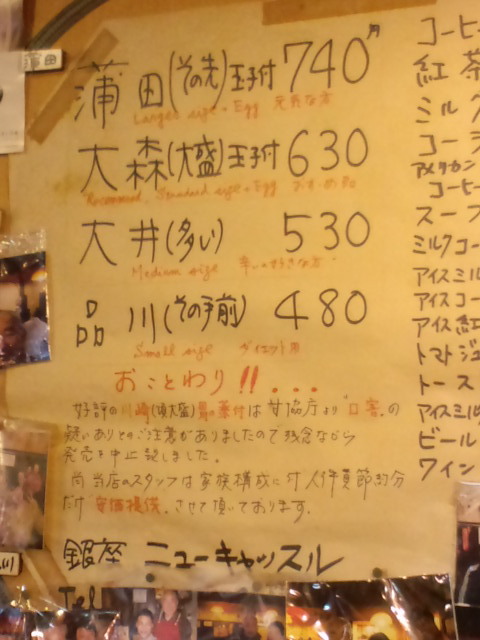 蒲田
蒲田(その先)玉子付740円
Larger size + Egg 元気な方
大森(大盛)玉子付630
Recommend, Standard size + Egg おすすめ品
大井(多い) 530
Medium size 辛いの好きな方
品川(その手前) 480
Small size ダイエット用
おことわり!!...
好評の川崎(頃大盛)鼻薬付は甘協庁より"口害"の
疑いありとのご注意がありましたので残念ながら
発売を中止致しました。
尚当店のスタッフは家族構成に付人件費節約分
だけ"安価提供"させて頂いております。
銀座 ニューキャッスル
Tel
コーヒー
紅茶
ミルク
コーラ
アメリカン
コーヒー
スープ
ミルクコー
アイスミル
アイスコー
アイス紅
トマトジュ
トース
アイスミルク
ビール
ワイン
川